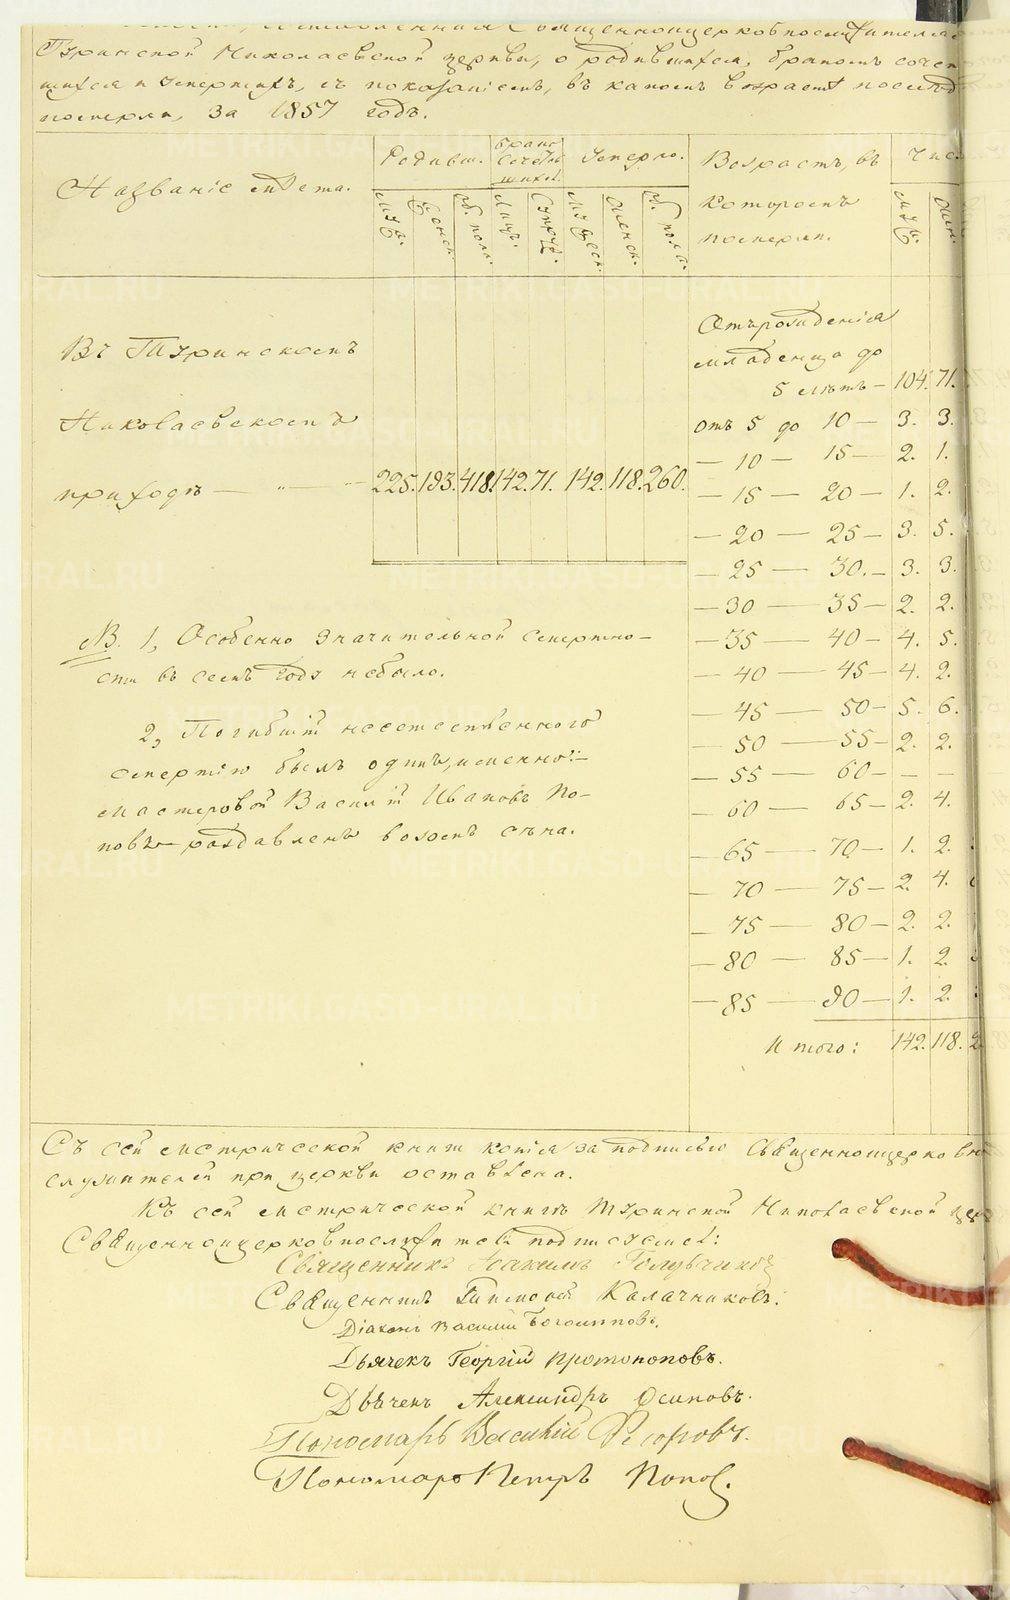 Священноцерковнослужителями
Туринской Николаевской церкви, о родившихся, бракомъ сочет
шихся и умершихъ, съ показаніемъ, въ какомъ возрастѣ послѣд
померли, за 1857 годъ.
Названіе мѣста.
Родивш.
Брако
сочетав
шихся.
Умерло.
Возрастъ, въ
которомъ
померли.
Чис
Муж.
Женск.
Об. пола.
Лицъ.
Супруж.
Мужеск.
Женск.
Об. пола.
Муж.
Жен.
Въ Туринскомъ
Николаевскомъ
приходѣ — " — 225. 193. 418. 142. 71. 142. 118. 260.
Отъ рожденія
младенца до
5 лѣтъ — 104. 71.
отъ 5 до 10 — 3. 3.
— 10 — 15 — 2. 1.
— 15 — 20 — 1. 2.
— 20 — 25 — 3. 5.
— 25 — 30. — 3. 3.
— 30 — 35 — 2. 2.
— 35 — 40 — 4. 5.
— 40 — 45 — 4. 2.
— 45 — 50 — 5. 6.
— 50 — 55 — 2. 2.
— 55 — 60 — — —
— 60 — 65 — 2. 4.
— 65 — 70 — 1. 2.
— 70 — 75 — 2. 4.
— 75 — 80 — 2. 2.
— 80 — 85 — 1. 2.
— 85 — 90 — 1. 2.
Итого: 142. 118. 2
NB. 1, Особенно значительной смертно-
сти въ семъ году небыло.
2, Погибшій неестественного
смертію былъ одинъ, именно:—
мастеровой Василій Ивановъ По-
повъ — раздавленъ возомъ сѣна.
Съ сей метрической книги копія за подписью Священноцерковно
служителей при церкви оставлена.
Къ сей метрической книгѣ Туринской Николаевской цер
Священноцерковнослужители подписуемся:
Священникъ Іоакимъ Голубчиковъ
Священникъ Тимофей Калачниковъ.
Діаконъ Василій Боголѣповъ.
Дьячекъ Георгій Протопоповъ.
Дьячекъ Александръ Осиповъ.
Пономарь Василій Ѳедоровъ.
Пономарь Петръ Поповъ.
METRIKI.GASO-URAL.RU